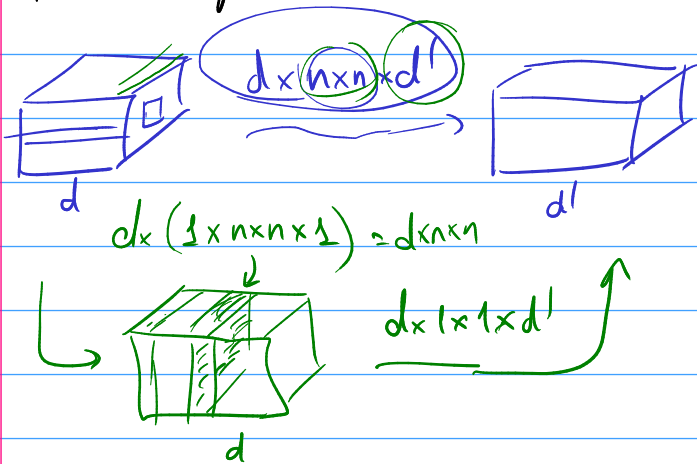 d×(n×n)×d'
d
d'
d× (1×n×n×1) = d×n×n
d×1×1×d'
d